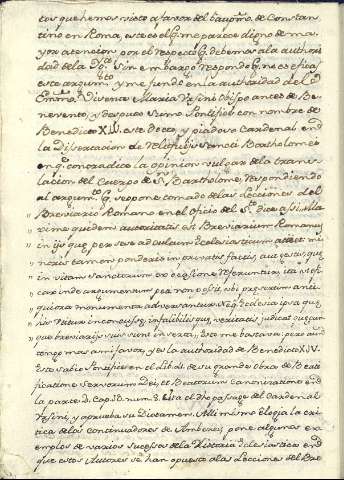 tos que hemos visto a favor del bautismo de Constan-
tino en Roma, este es el q. me parece digno de ma-
yor atencion por el respecto q. debemos a la authori-
dad de la Ygl.ª Sin embargo respondo q. no es eficaz
este argum.to y me fundo en la authoridad del
Em.mo Vicente Maria Vrsini Obispo antes de Be-
nevento, y despues Sumo Pontifice con nombre de
Benedicto XIII. este docto, y piadoso Cardenal en
la Disertacion de Reliquiis Sancti Bartholomei
en q. contradice la opinion vulgar de la trans-
lacion del Cuerpo de S.n Bartholome, respondiendo
al argum.to q. se opone tomado de las Lecciones del
Breviario Romano en el oficio del S.to dice assi. Ma-
xime quidem autoritatis est Breviarium Romanum
in ijs que per se se ad cultum Ecclesiasticum
noris tamen ponderis in privatis factis, aut gestis, que
in vitam Sanctorum ex occasione referuntur, ita ut efi-
cax inde argumentum peti non possit, si presertim anti-
quiora monumenta adversantur. Neq. Ecclesia ipsa que
infalibilis que veritatis judicat quequum-
que breviarijs suis sunt inserta. Esto me bastaba, pero aun
tengo mas a mi favor, y es la authoridad de Benedicto XIV.
Este sabio Pontifice en el Lib. 4. de su grande Obra de Beati-
ficatione Servorum Dei, et Beatorum Canonizatione en
la parte 2. Cap. 13. num. 8. cita el dho passage del Cardenal
Vrsini, y aprueba su Dictamen. Alli mismo elogia la cri-
tica de los Continuadores de Amberes; pone algunos ex-
emplos de varios sucessos de la Historia Eclesiastica en
que estos Autores se han opuesto a las Lecciones del Bre